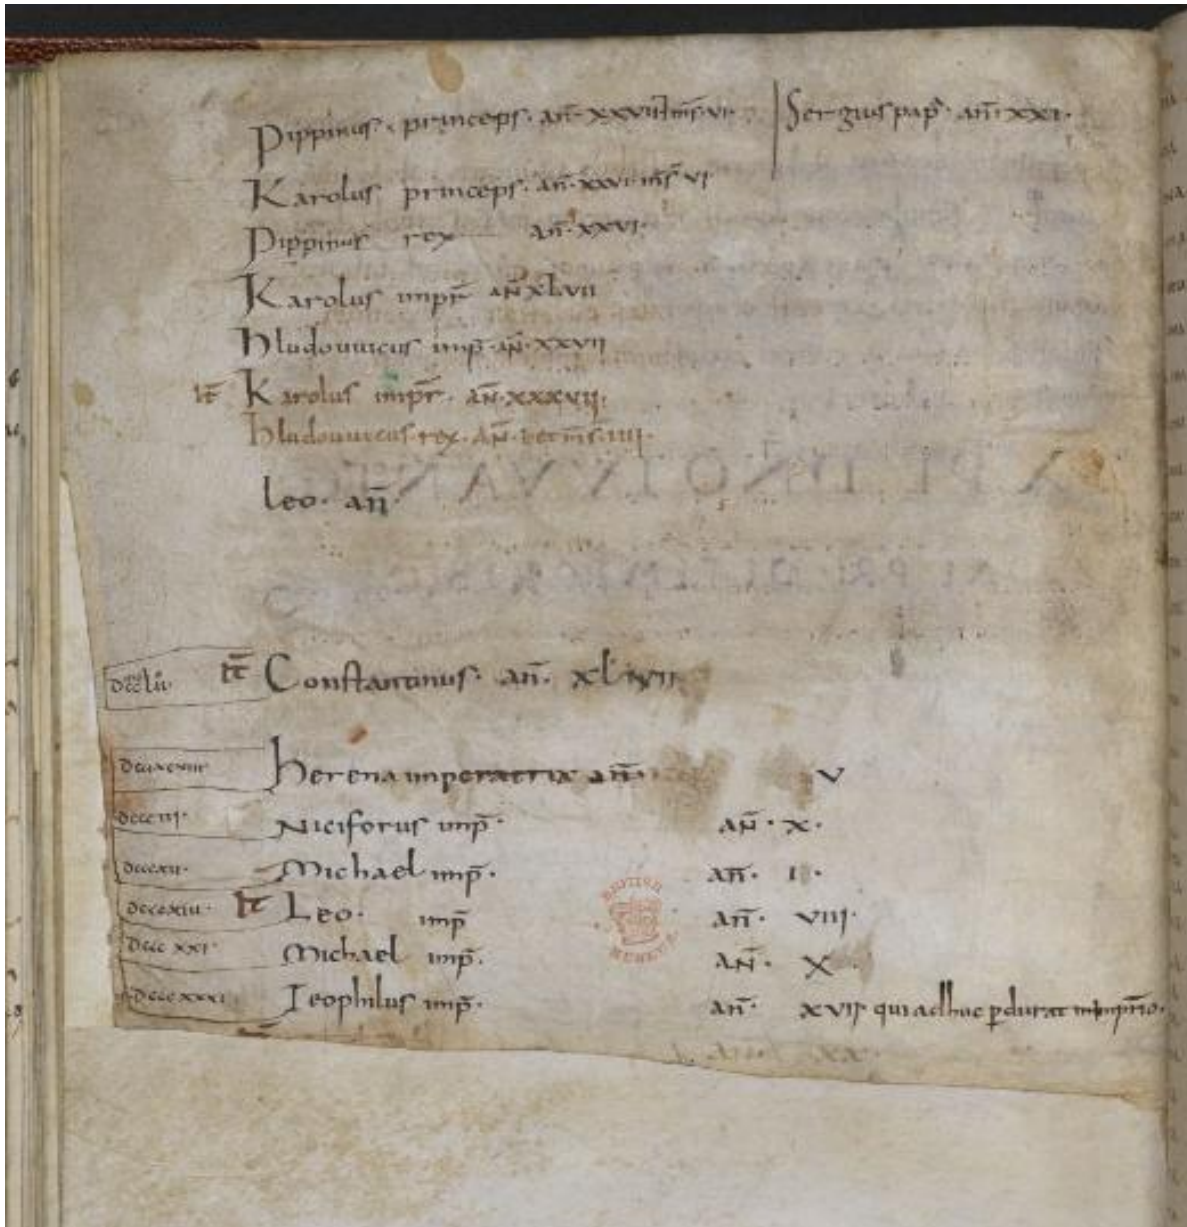 Pippinus · princeps · an̄ · xxvii · m̄s · vi · Sergius pap̄ · an̄ · xxi ·
Karolus princeps · an̄ · xxvi · m̄s vi
Pippinus rex an̄ · xxvi ·
Karolus imp̄r an̄ xlvii
hludouuicus imp̄ · an̄ · xxvii
it̄ Karolus imp̄r · an̄ · xxxvii ·
hludouuicus · rex · an̄ · m̄s · iiii ·
leo · an̄ ·
it̄ Constantinus · an̄ ·
dccxcviii herena imperatrix an̄ v
dccciii · Niciforus imp̄ · an̄ · x ·
dcccxii · Michael imp̄ · an̄ · i ·
dcccxiii · it̄ Leo · imp̄ an̄ · viii ·
dccc xxi · Michael imp̄ · an̄ · x ·
dcccxxxi Teophilus imp̄ · an̄ · xvii · qui adhuc ꝑdurat in imp̄rio ·
BRITISH MUSEUM